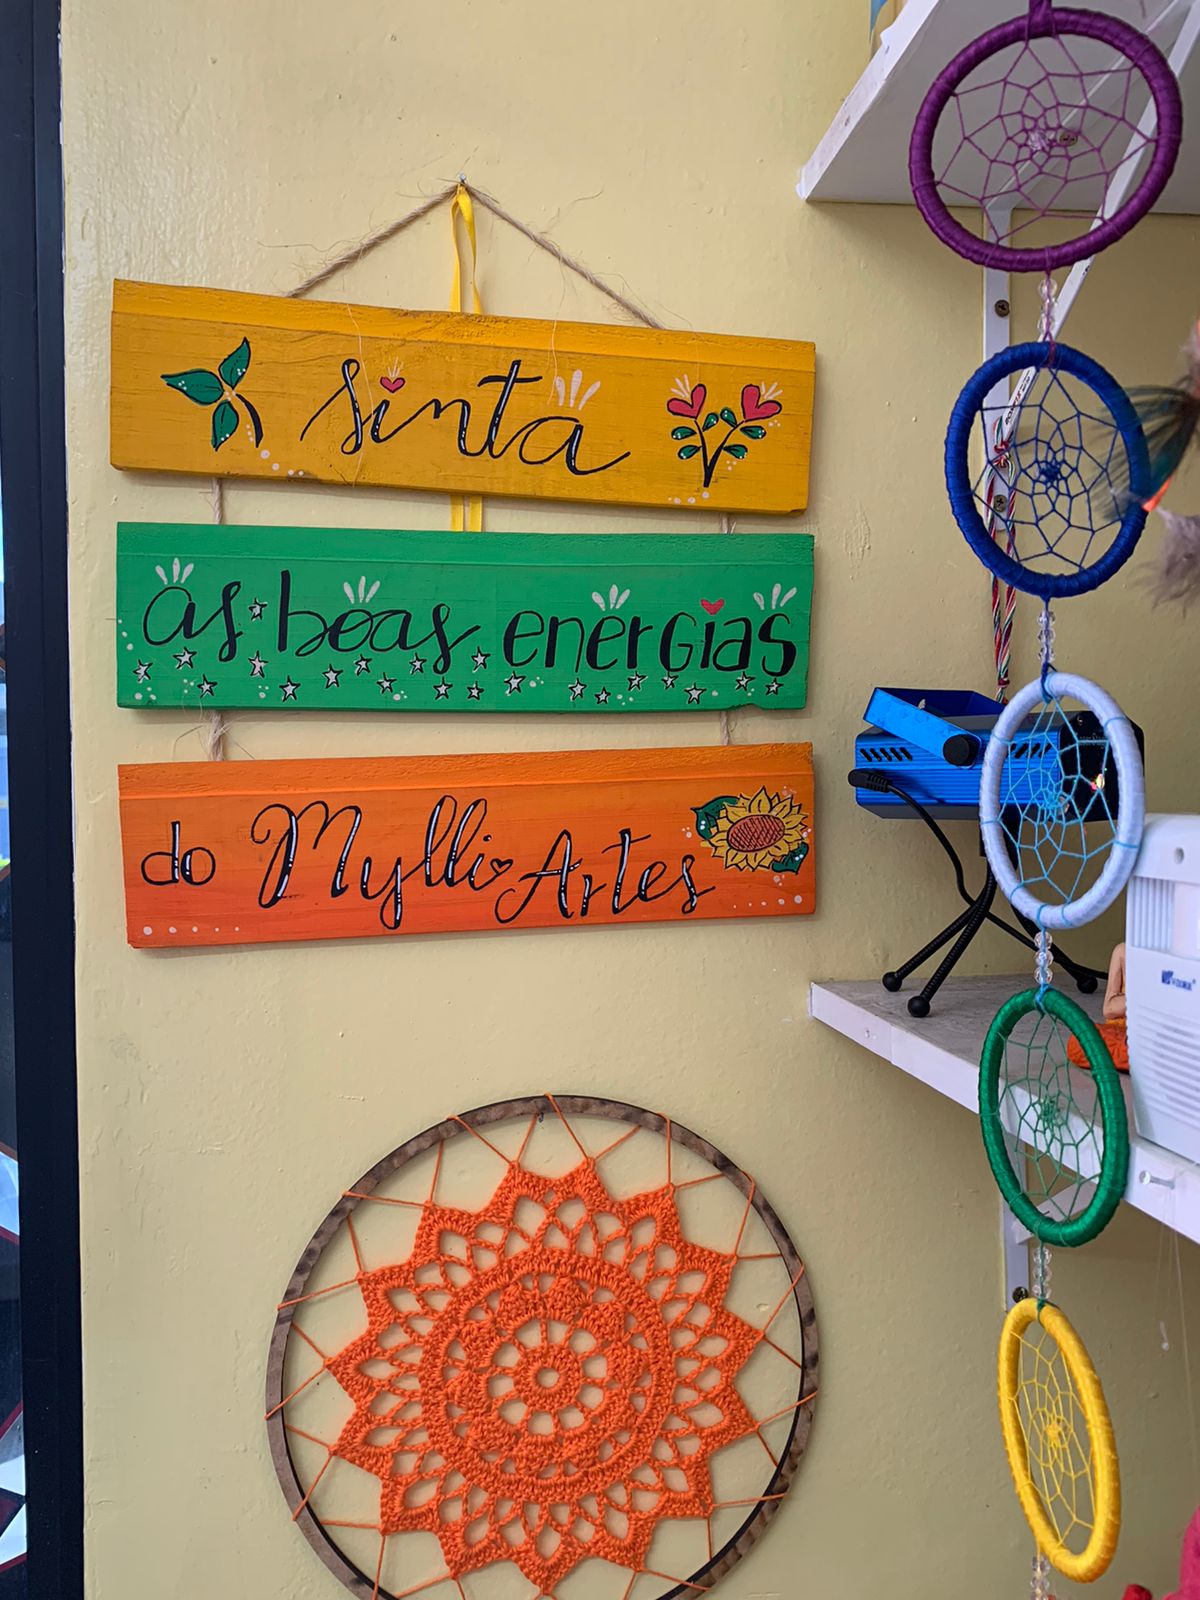 sinta
as boas energias
do Mylli Artes